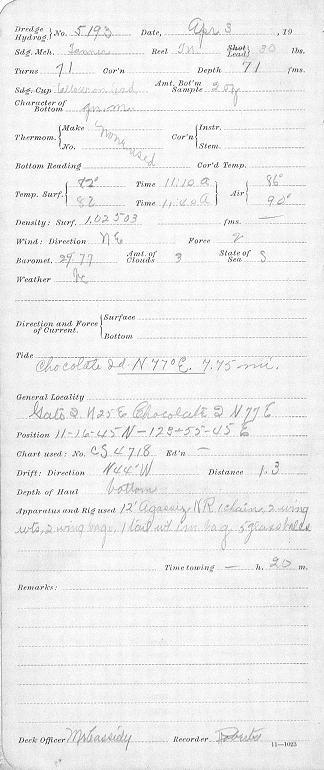 Dredge Hydrog. No. 5193 Date, Apr 3, 19
Sdg. Mch. Tanner Reel Tm Shot Lead 30 lbs.
Turns 71 Cor'n Depth 71 fms.
Sdg. Cup Amt. Bot'm Sample 2 oz
Character of Bottom gn. m.
Thermom. Make None No. used Cor'n Instr. Stem.
Bottom Reading Cor'd Temp.
Temp. Surf. 82° Time 11:10 a Air 86°
82 Time 11:40 a 90°
Density: Surf. 1.02503 fms. —
Wind: Direction NE Force 2
Baromet. 29.77 Amt. of Clouds 3 State of Sea S
Weather bc
Direction and Force of Current. Surface
Bottom
Tide
Chocolate Id. N 77° E. 7.75 mi.
General Locality
Gato I. N 25 E Chocolate I N 77 E
Position 11-16-45 N - 123-55-45 E
Chart used: No. CS 4718 Ed'n —
Drift: Direction N 44° W Distance 1.3
Depth of Haul bottom
Apparatus and Rig used 12' Agassiz NR 1 chain, 2 wing
wts, 2 wing bags, 1 tail wt 1 m. bag. 5 glass balls
Time towing — h. 20 m.
Remarks:
Deck Officer McCassidy Recorder Roberts
11—1023